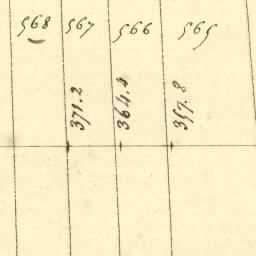 568 567 566 565
371.2
364.4
357.8